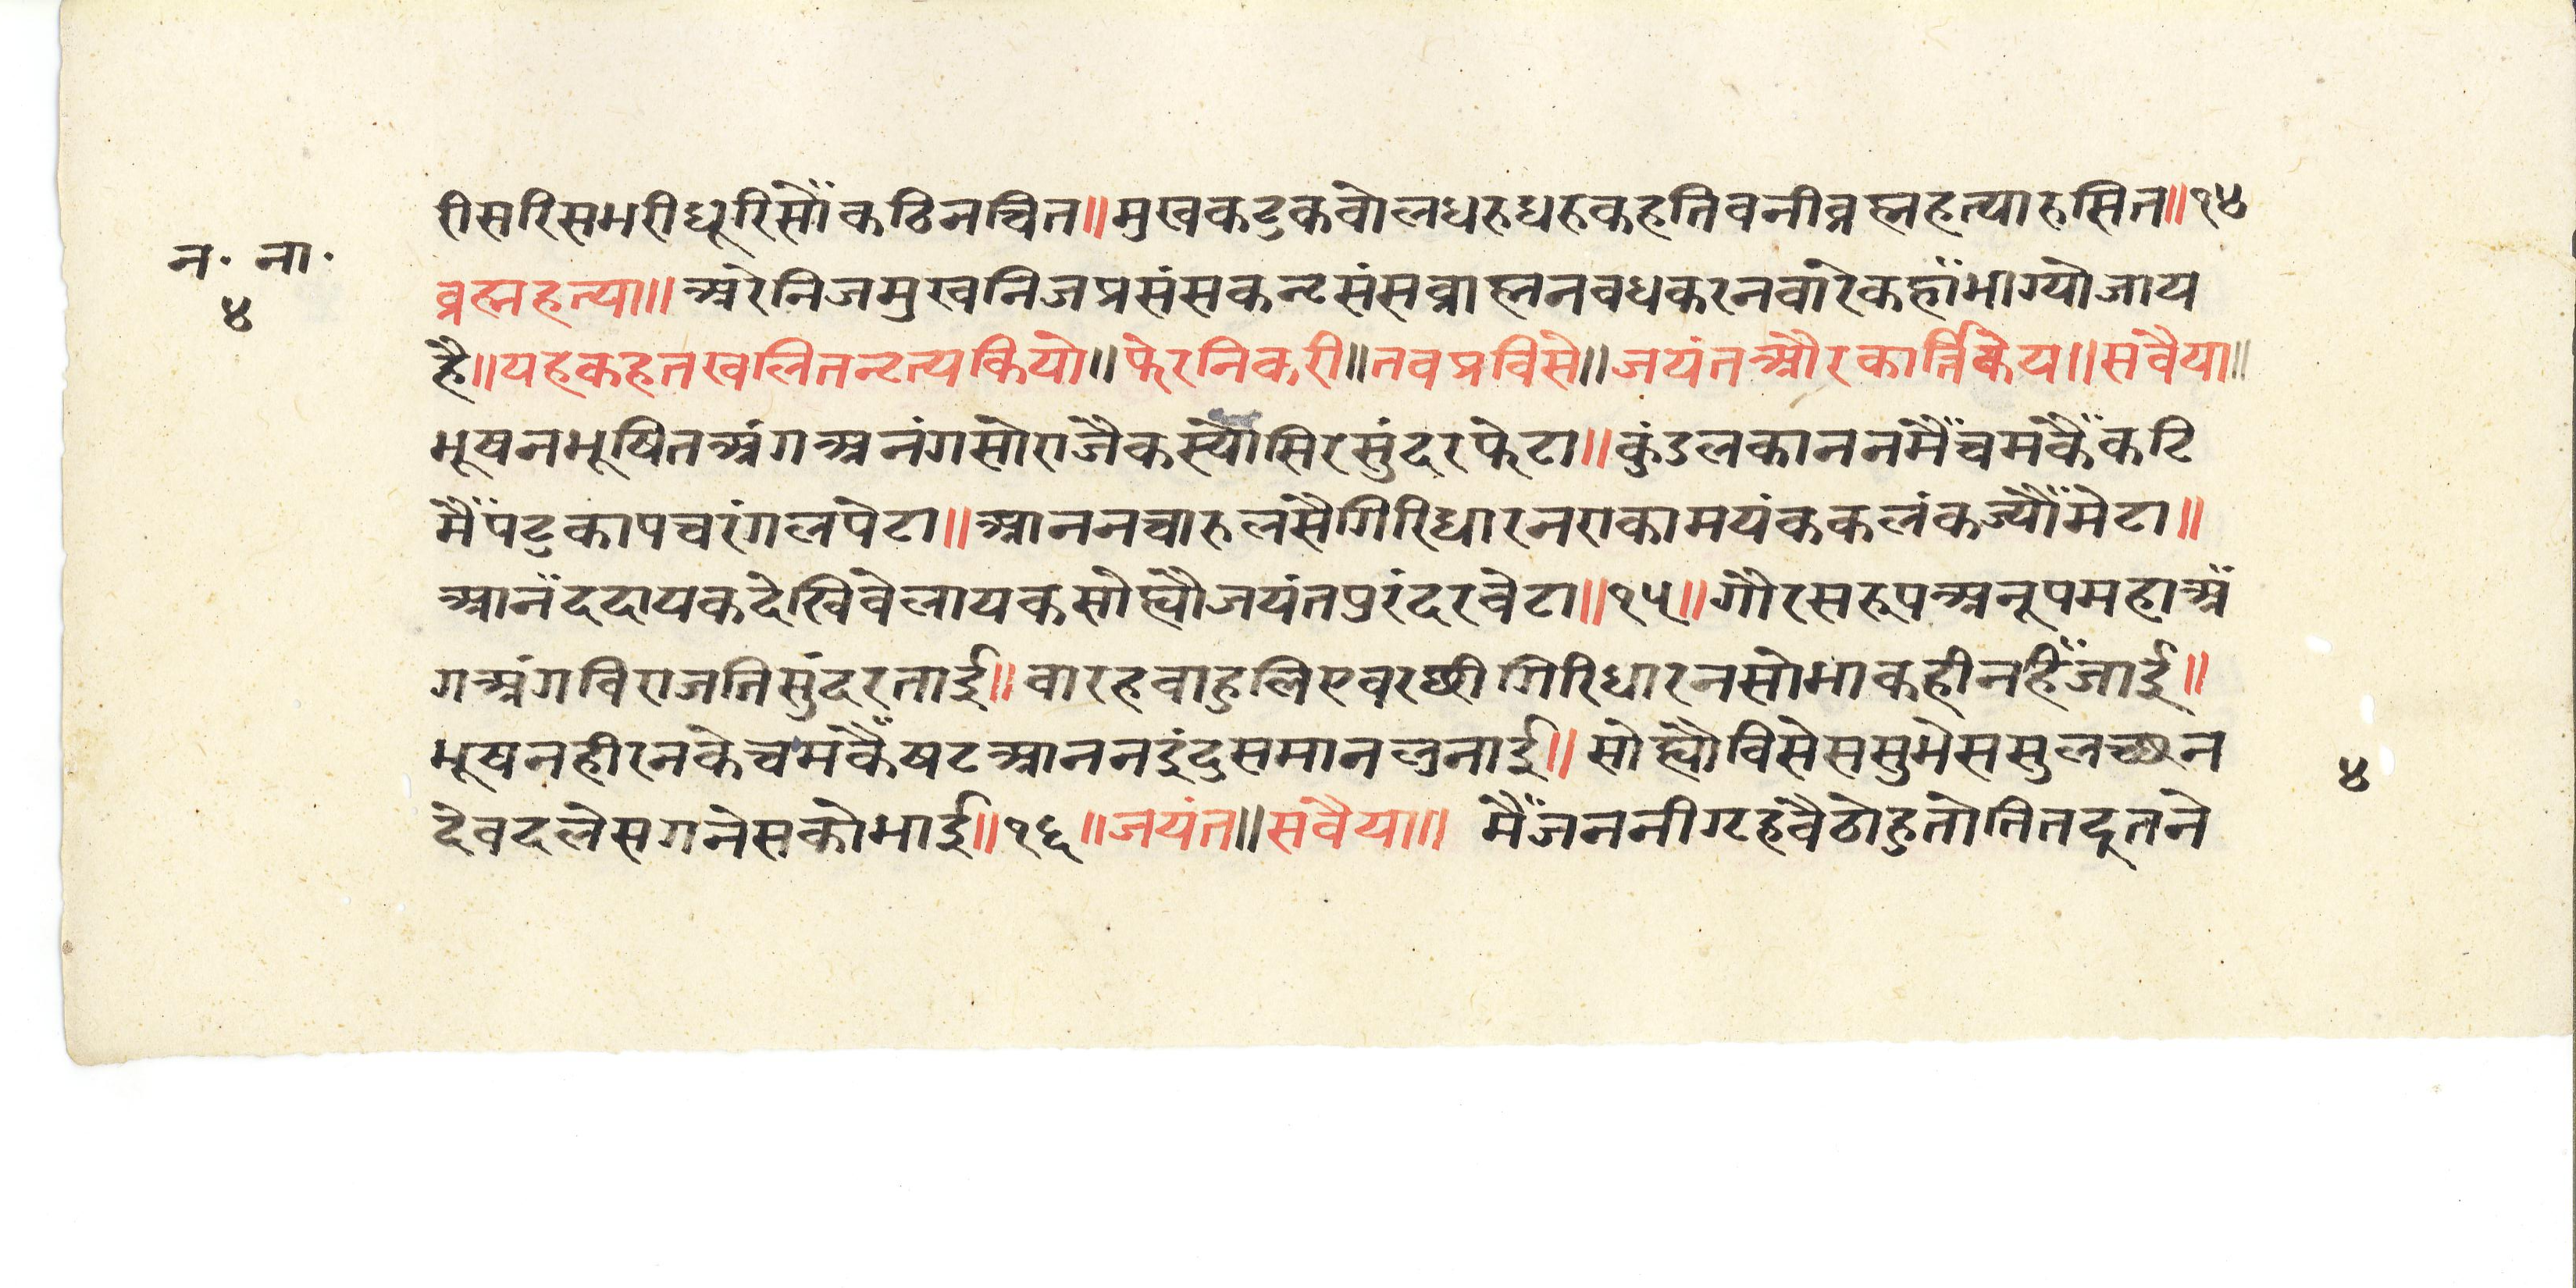 रीसरिसमरीधूरिसोंकठिनचित॥मुखकटुकवोलधरुधरुकहतिवनीव्रह्महत्यारुसित॥१४
न॰ ना॰
४
व्रह्महत्या॥अरेनिजमुखनिजप्रसंसकनृसंसव्राह्मनवधकरनवारेकहाँभाग्योजाय
है॥यहकहतखलितनृत्यकियो॥फेरनिकरी॥तवप्रविसे॥जयंतऔरकार्त्तिकेय॥सवैया॥
भूषनभूषितअंगअनंगसोराजैकस्यौसिरसुंदरफेटा॥कुंडलकाननमैंचमकैंकटि
मैंपंटुकापचरंगलपेटा॥आननचारुलसैगिरिधारनराकामयंककलंकज्यौंमेटा॥
आनँददायकदेखिवेलायकसोह्यौजयंतपुरंदरवेटा॥१५॥गौरसरूपअनूपमहाअं
गअंगविराजतिसुंदरताई॥वारहवाहुलिएवरछीगिरिधारनसोभाकहीनहिंजाई॥
भूषनहीरनकेचमकैंषटआननइंदुसमानलुनाई॥सोह्यौविसेससुभेससुलच्छन
देवदलेसगनेसकोभाई॥१६॥जयंत॥सवैया॥ मैंजननीगृहवैठोहुतोतितदूतने
४